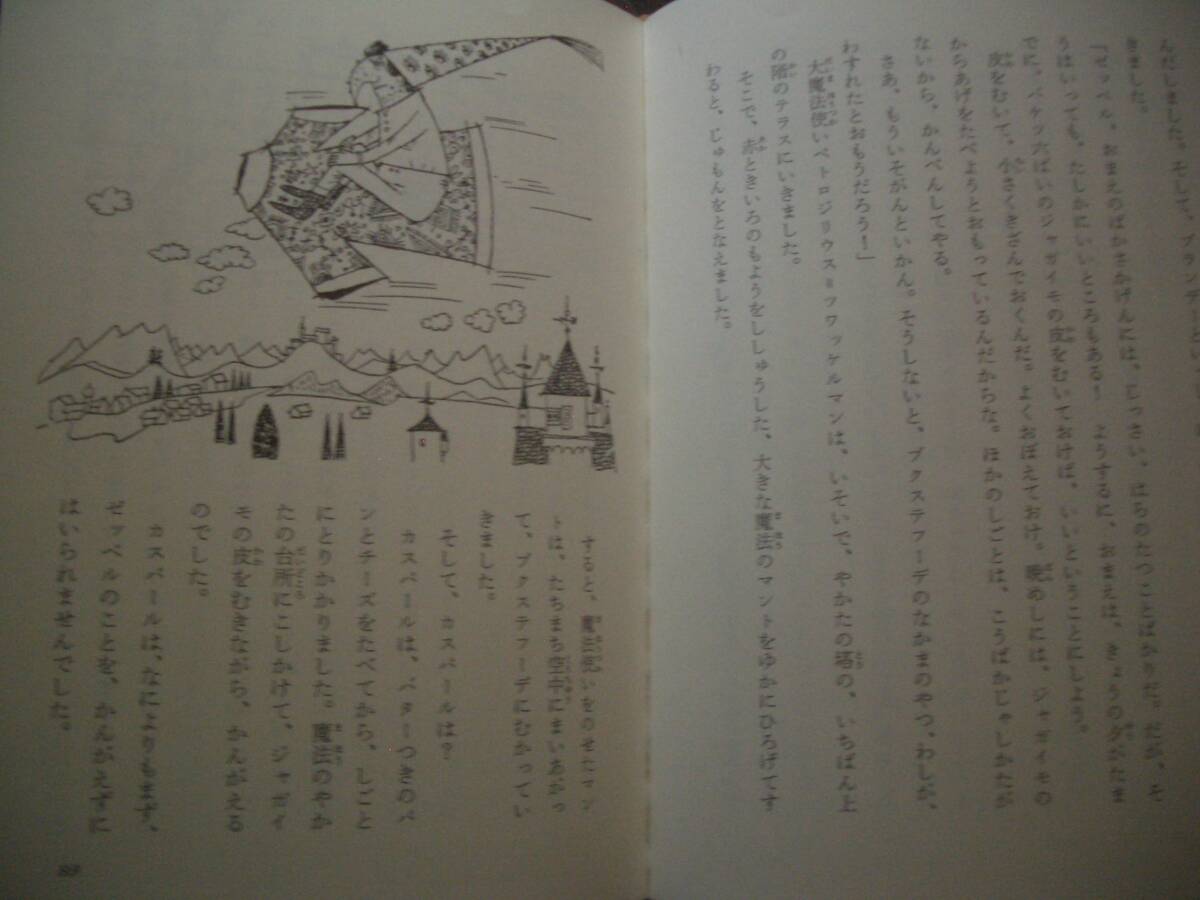 んだしました。そして、
きました。
「ゼッペル、おまえのばかさかげんには、じっさい、はらのたつことばかりだ。だが、そ
うはいっても、たしかにいいところもある！　ようするに、おまえは、きょうの夕がたま
でに、バケツ六ぱいのジャガイモの皮をむいておけば、いいということにしよう。
皮をむいて、小さくきざんでおくんだ。よくおぼえておけ。晩めしには、ジャガイモの
からあげをたべようとおもっているんだからな。ほかのしごとは、こうばかじゃしかたが
ないから、かんべんしてやる。
さあ、もういそがんといかん。そうしないと、ブクステフーデのなかまのやつ、わしが、
わすれたとおもうだろう！」
大魔法使いペトロジリウス＝ツワッケルマンは、いそいで、やかたの塔の、いちばん上
の階のテラスにいきました。
そこで、赤ときいろのもようをししゅうした、大きな魔法のマントをゆかにひろげてす
わると、じゅもんをとなえました。
すると、魔法使いをのせたマン
トは、たちまち空中にまいあがっ
て、ブクステフーデにむかってい
きました。
そして、カスパールは？
カスパールは、バターつきのパ
ンとチーズをたべてから、しごと
にとりかかりました。魔法のやか
たの台所にこしかけて、ジャガイ
モの皮をむきながら、かんがえる
のでした。
カスパールは、なによりもまず、
ゼッペルのことを、かんがえずに
はいられませんでした。
89